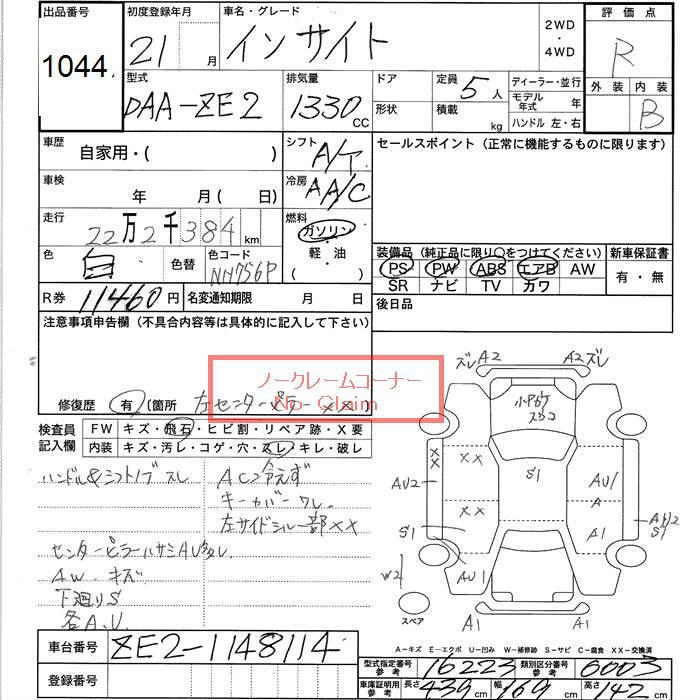 出品番号 初度登録年月 車名・グレード 評価点
1044 21 月 インサイト 2WD・4WD R
型式 排気量 ドア 定員 5 人 ディーラー・並行 外装 内装
DAA-ZE2 1330 CC 形状 積載 kg モデル年式 年 B
ハンドル 左・右
車歴 自家用・( ) シフト A/T セールスポイント (正常に機能するものに限ります)
車検 年 月 ( 日) 冷房 AA/C
走行 22万2千384 km 燃料 ガソリン・軽・油 ( )
色 白 色替 色コード NH756P
装備品 (純正品に限り○をつけてください) 新車保証書
PS PW ABS エアB AW 有・無
SR ナビ TV カワ
R券 11460 円 名変通知期限 月 日 後日品
注意事項申告欄 (不具合内容等は具体的に記入して下さい)
ノークレームコーナー
No Claim
修復歴 有 (箇所 左センターピラー XX
検査員記入欄 FW キズ・飛石・ヒビ割・リペア跡・X要
内装 キズ・汚レ・コゲ・穴・スレ・キレ・破レ
ハンドル&シフトノブ スレ
ACン冷えず
キーカバーワレ
左サイドシル一部XX
センターピラーハサミAU多々
AW キズ
下廻りS
各A.U.
ズレ A2 A2 ズレ
小アカケ
XX XX S1 AU1
AU2 A
XX A1 AU2
S1 S1
W2 AU1
A1 A1
スペア
A-キズ E-エクボ U-凹み W-補修跡 S-サビ C-腐食 XX-交換済
車台番号 ZE2-1148114
型式指定番号 参考 16223 類別区分番号 参考 6003
登録番号 車庫証明用 参考 長さ 439 cm 幅 169 cm 高さ 142 cm